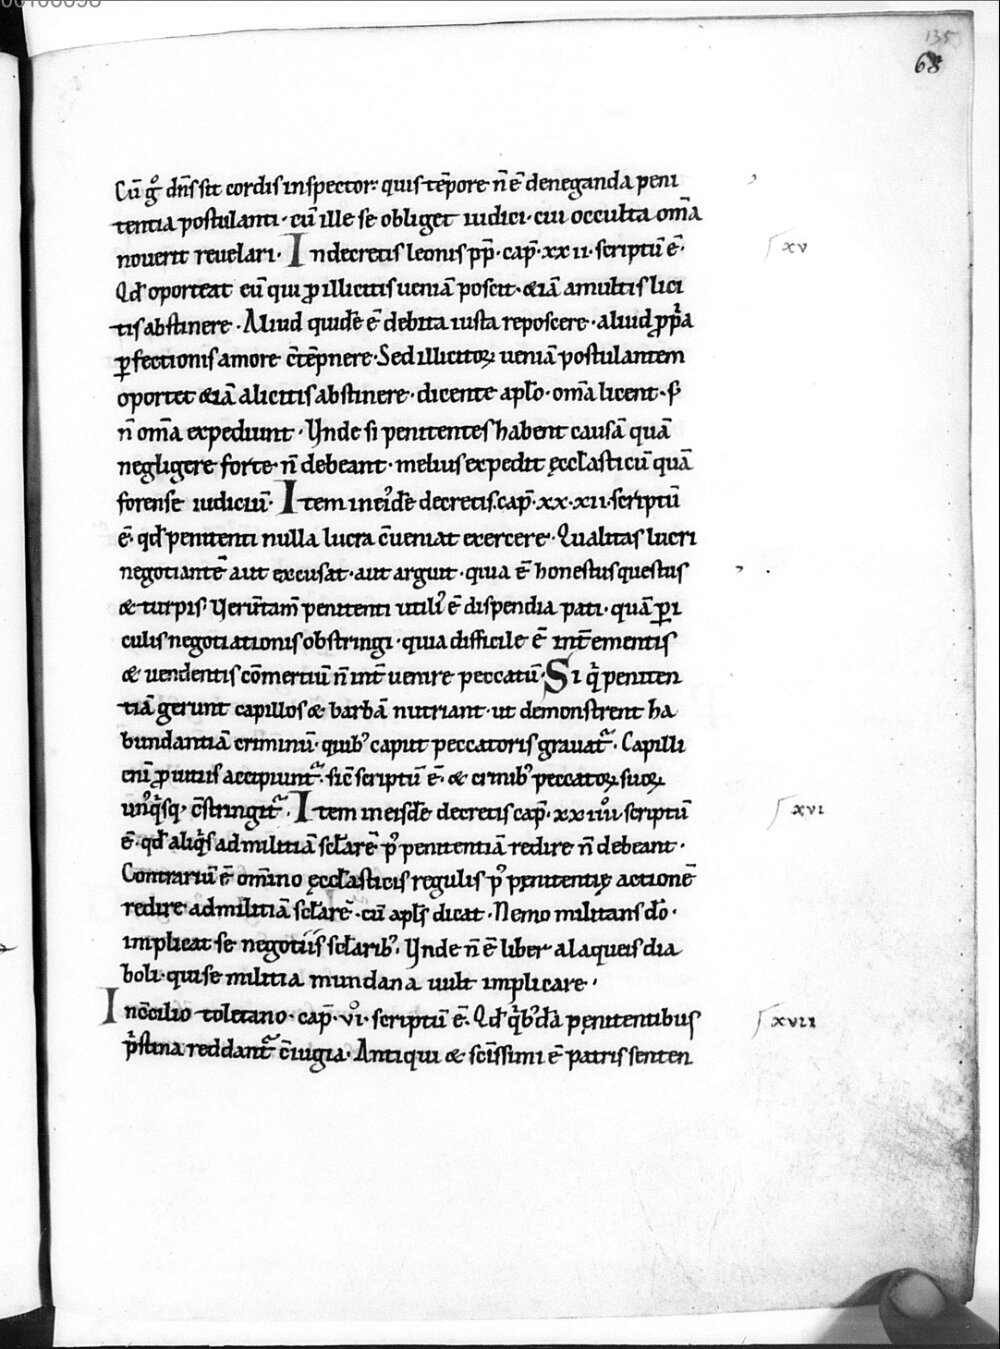 135
68
Cū gͦ dn̄s sit cordis inspector· quis tēpore n̄ ē deneganda peni
tentia postulanti· cū ille se obliget iudici· cui occulta om̄a
nouerit reuelari. In decretis leonis pp̄· cap̄· xxii· scriptū ē·
xv
Qđ oporteat eū qui ꝓ illicitis ueniā poscit· &iā a multis lici
tis abstinere· Aliud quidē ē debita iusta reposcere· aliud ꝓp̄a
ꝑfectionis amore c̄tēpnere· Sed illicitoꝝ ueniā postulantem
oportet &iā a licitis abstinere· dicente apl̄o· om̄a licent· s;
n̄ om̄a expediunt· Unde si penitentes habent causā quā
negligere forte n̄ debeant· melius expedit ęccl̄asticū quā
forense iudiciū· Item in eisdē decretis· cap̄· xx·xii· scriptū
ē· qđ penitenti nulla lucra c̄ueniat exercere· Qualitas lucri
negotiantē aut excusat· aut arguit· quia ē honestus questus
& turpis· Uerūtam̄ penitenti utili᾽ ē dispendia pati· quā ꝑi
culis negotiationis obstringi· quia difficile ē int̄ ementis
& uendentis cōmertiū n̄ int̄uenire peccatū· Si q̓ peniten
tiā gerunt capillos & barbā nutriant· ut demonstrent ha
bundantiā criminū· quib᾽ caput peccatoris grauat᷑· Capilli
eni ꝓ uitiis accipiunt᷑· sic̄ scriptū ē· & crinib᾽ peccatoꝝ suoꝝ
un᾽q̓sq; c̄stringit᷑· Item in eisdē decretis cap̄· xxiiii scriptū
xvi
ē· qđ aliq̓s ad militiā sc̄larē p᾽ penitentiā redire n̄ debeant·
Contrariū ē om̄ino ęccl̄asticis regulis p᾽ pęnitentię actionē
redire ad militiā sc̄larē· cū apl̄s dicat· Nemo militans dō·
implicat se negotiis sc̄larib᾽· Unde n̄ ē liber a laqueis dia
boli· qui se militia mundana uult implicare·
In c̄cilio toletano· cap̄· vi· scriptū ē· Qđ q̓b᾽dā pęnitentibus
xvii
p̓stina reddant᷑ c̄iugia· Antiqui & sc̄issimi ē patris senten